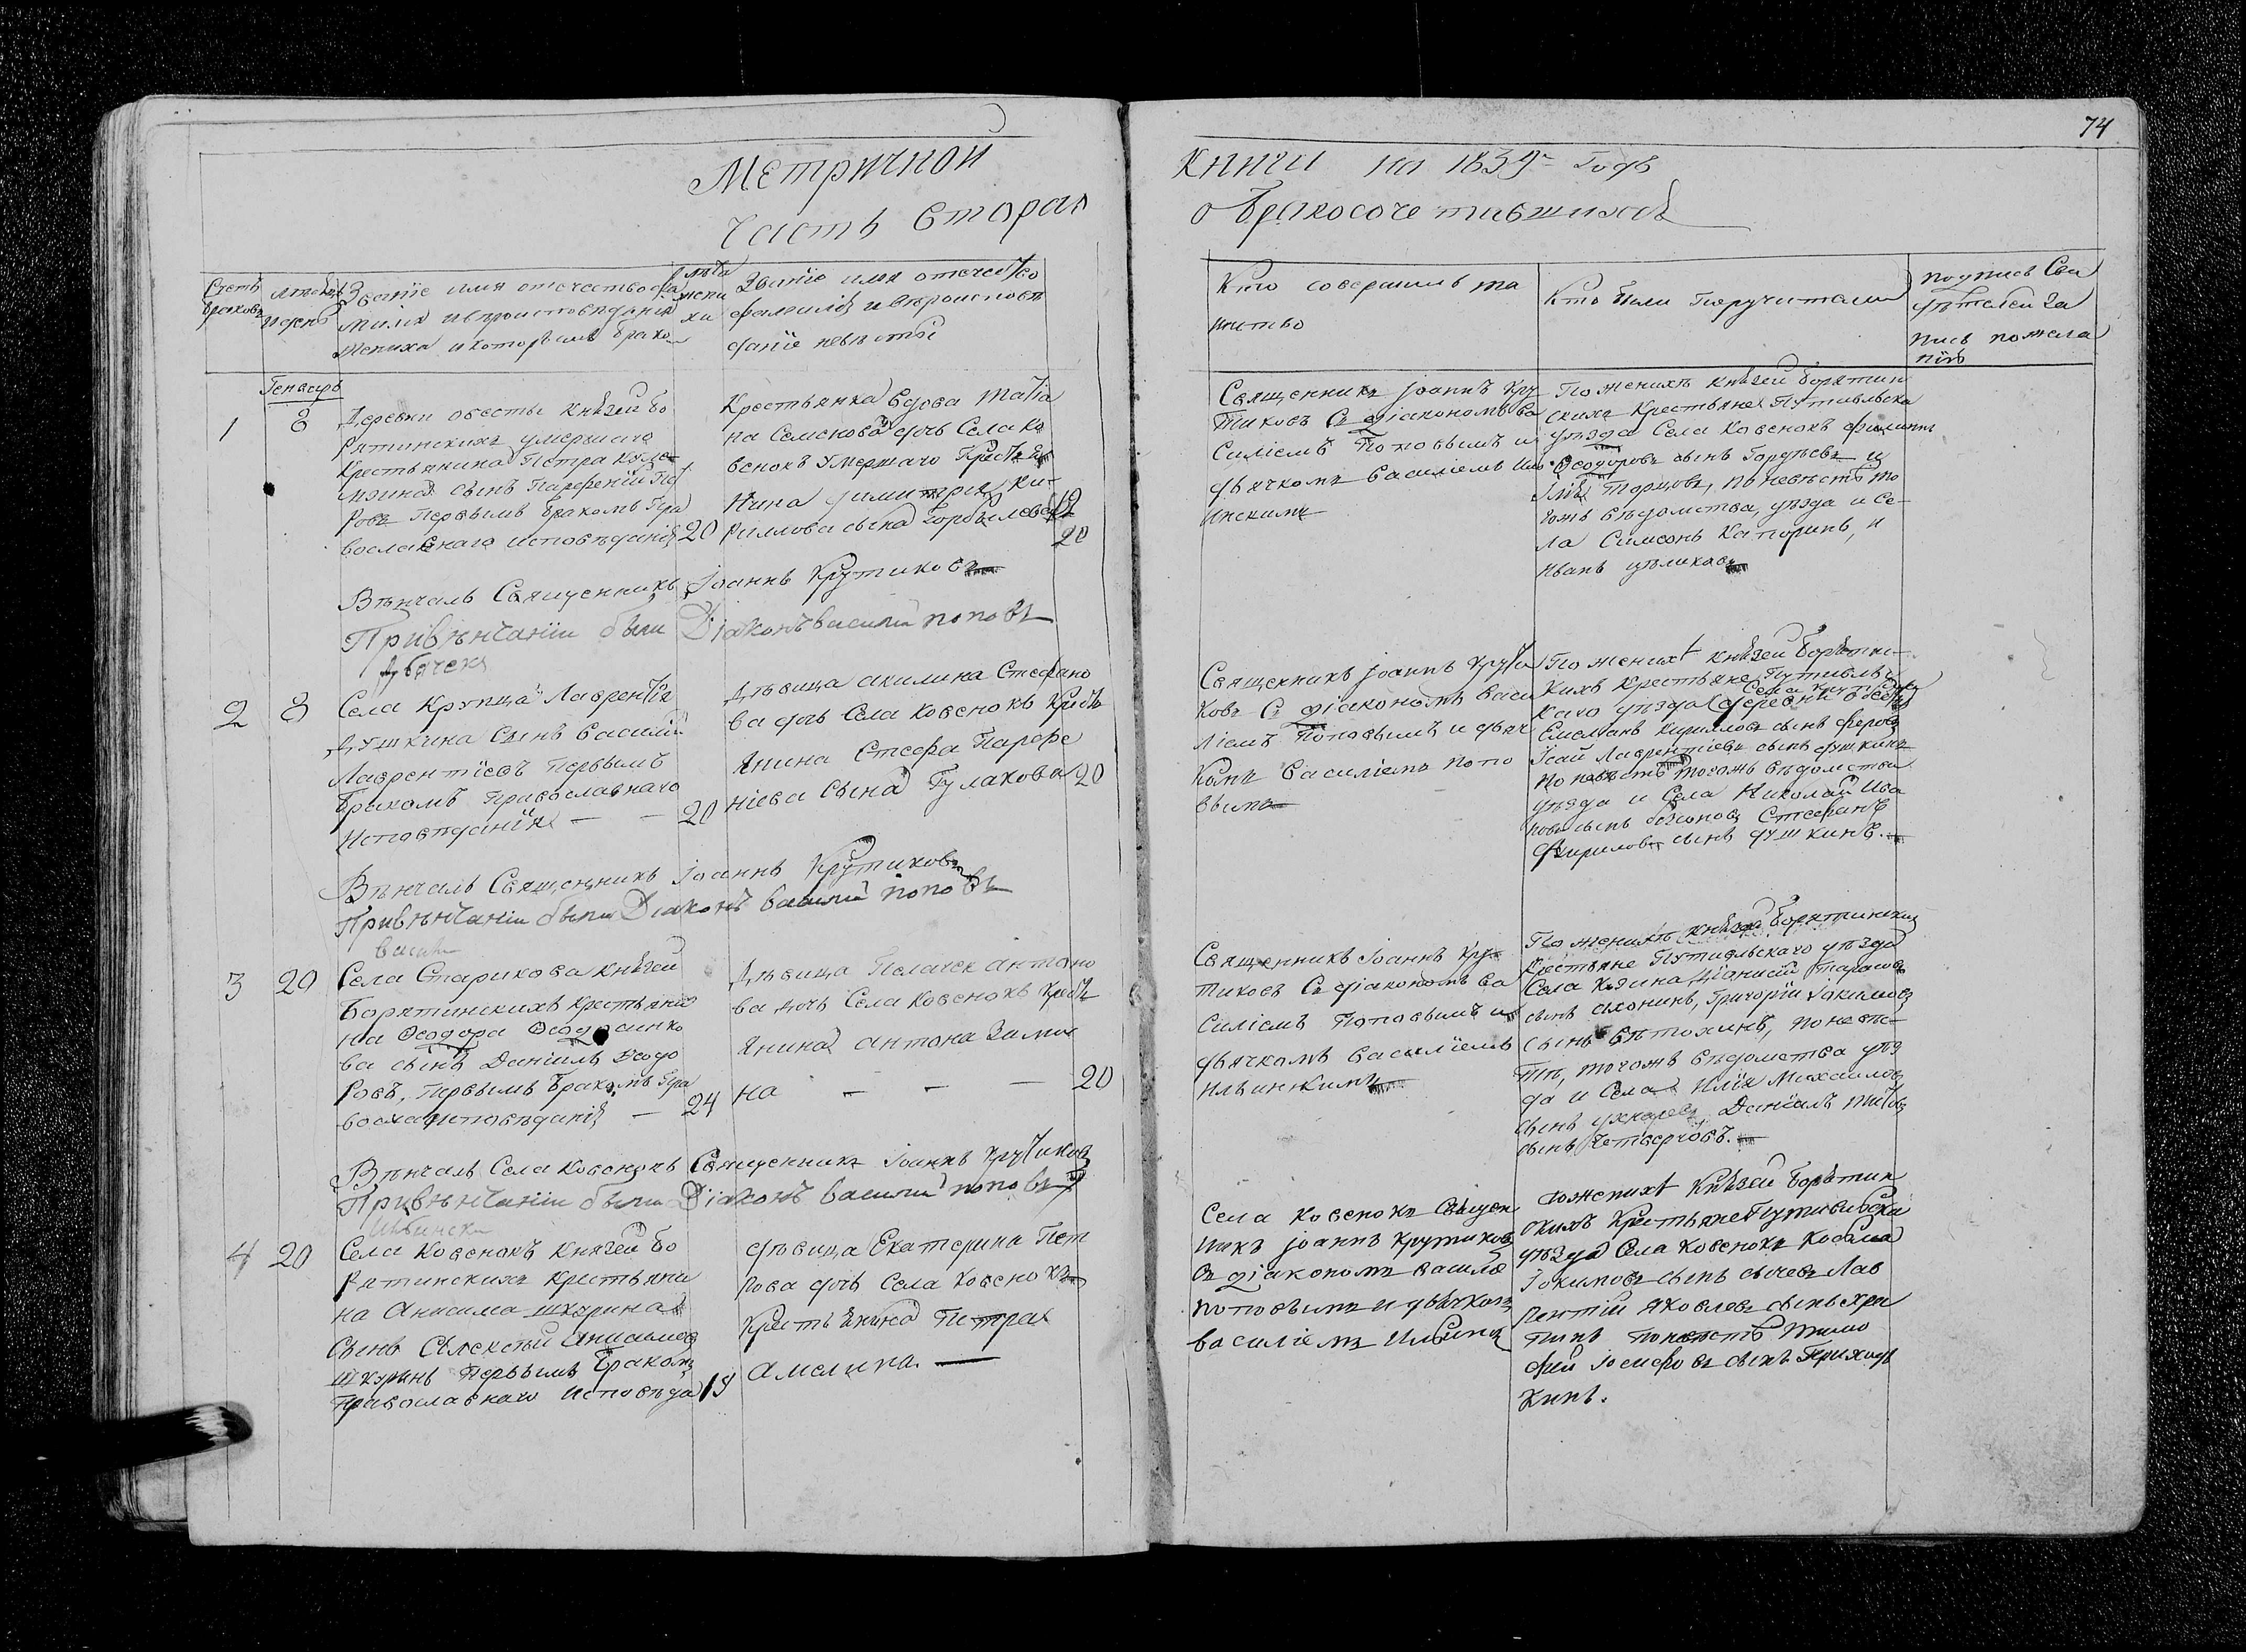 74
Метричной
Часть вторая
Книги на 1839 Годъ
о бракосочетавшихся
Счетъ
браковъ
Месяцъ
и день
Званіе имя отечество фа
милія и вероисповеданія
Жениха и которымъ брако
лета
жени
ха
Званіе имя отечество
фамилія и вероиспове
даніе невесты
Кто совершилъ та
инство
Кто были Поручители
подпись сви
детелей за
пись по жела
нію
Генварь
1
8
Деревни князей Бо
рятинскихъ умершаго
Крестьянина Петра
сынъ Парфеній Пе
ровъ Первымъ бракомъ Пра
вославнаго исповеданія
20
Крестьянка вдова Татіа
на Семенова дочь Села Ко
венокъ умершаго Крестья
нина Димитрія Ки
риллова сына Горбылева
20
Священникъ Іоаннъ Кру
тиковъ Съ діакономъ Ва
силіемъ Поповымъ и
дьячкомъ Василіемъ Иль
инскимъ
По женихе князей Борятин
скихъ Крестьяне Путивльска
уезда Села Ковенокъ Филиппъ
Феодоровъ сынъ и
по невесте то
гожъ ведомства, уезда и Се
ла Симеонъ Каторинъ, и
Иванъ
Венчалъ Священникъ Іоаннъ Крутиковъ
При венчаніи были Діаконъ Василій Поповъ
Дьячекъ
2
8
Села Крупца Лаврентія
Душкина Сынъ Василій
Лаврентіевъ Первымъ
бракомъ Православнаго
Исповеданія — —
20
Девица Акилина Стефано
ва дочь Села Ковенокъ Кресть
янина Стефа Парфе
ніева Сына Гулакова
20
Священникъ Іоаннъ Крути
ковъ Съ діакономъ Васи
ліемъ Поповымъ и дьяч
комъ Василіемъ Попо
вымъ
По женихе князей Борятин
скихъ Крестьяне Путивльс
каго уезда деревни
Емельянъ Кирилловъ сынъ
Ісай Лаврентіевъ сынъ Душкинъ
По невесте тогожъ ведомства
уезда и Села Николай Ива
новъ сынъ Стефанъ
Кириловъ сынъ Душкинъ.
Венчалъ Священникъ Іоаннъ Крутиковъ
При венчаніи были Діаконъ Василій Поповъ
Васили
3
20
Села Старикова Князей
Борятинскихъ крестьяни
на Феодора
ва сынъ Даніилъ Феодо
ровъ, Первымъ бракомъ Пра
восла исповеданія —
24
Девица Пелагея Антоно
ва дочь Села Ковенокъ Кресть
янина Антона Зимы
на — — —
20
Священникъ Іоаннъ Кру
тиковъ Съ діакономъ Ва
силіемъ Поповымъ и
дьячкомъ Василіемъ
Ильинскимъ
По женихе князей Борятинскихъ
Крестьяне Путивльскаго уезда
Села Діонисій Тарасовъ
сынъ Григорій Іакимовъ
сынъ Ветохинъ, по невес
те, тогожъ ведомства уез
да и Села Илія Михаиловъ
сынъ Даніилъ Титовъ
сынъ Четвертовъ.
Венчалъ Села Ковенокъ Священникъ Іоаннъ Крутиковъ
При венчаніи были Діаконъ Василій Поповъ
Ильински
4
20
Села Ковенокъ Князей Бо
рятинскихъ Крестьяни
на Анисима Шкурина
Сынъ Анисимовъ
Шкуринъ Первымъ Бракомъ
Православнаго исповеда
19
девица Екатерина Пет
рова дочь Села Ковенокъ
Крестьянина Петра
Амелина. —
Села Ковенокъ Священ
никъ Іоаннъ Крутиковъ
Съ діакономъ Василіе
Поповымъ и дьячкомъ
Василіемъ Ильинс
По женихе Князей Борятин
скихъ Крестьяне Путивльска
уезда Села Ковенокъ Косьма
Іокимовъ сынъ Сычевъ Лав
рентій Яковлевъ сынъ
По невесте Тимо
фей Іосифовъ сынъ Приходь
кинъ.